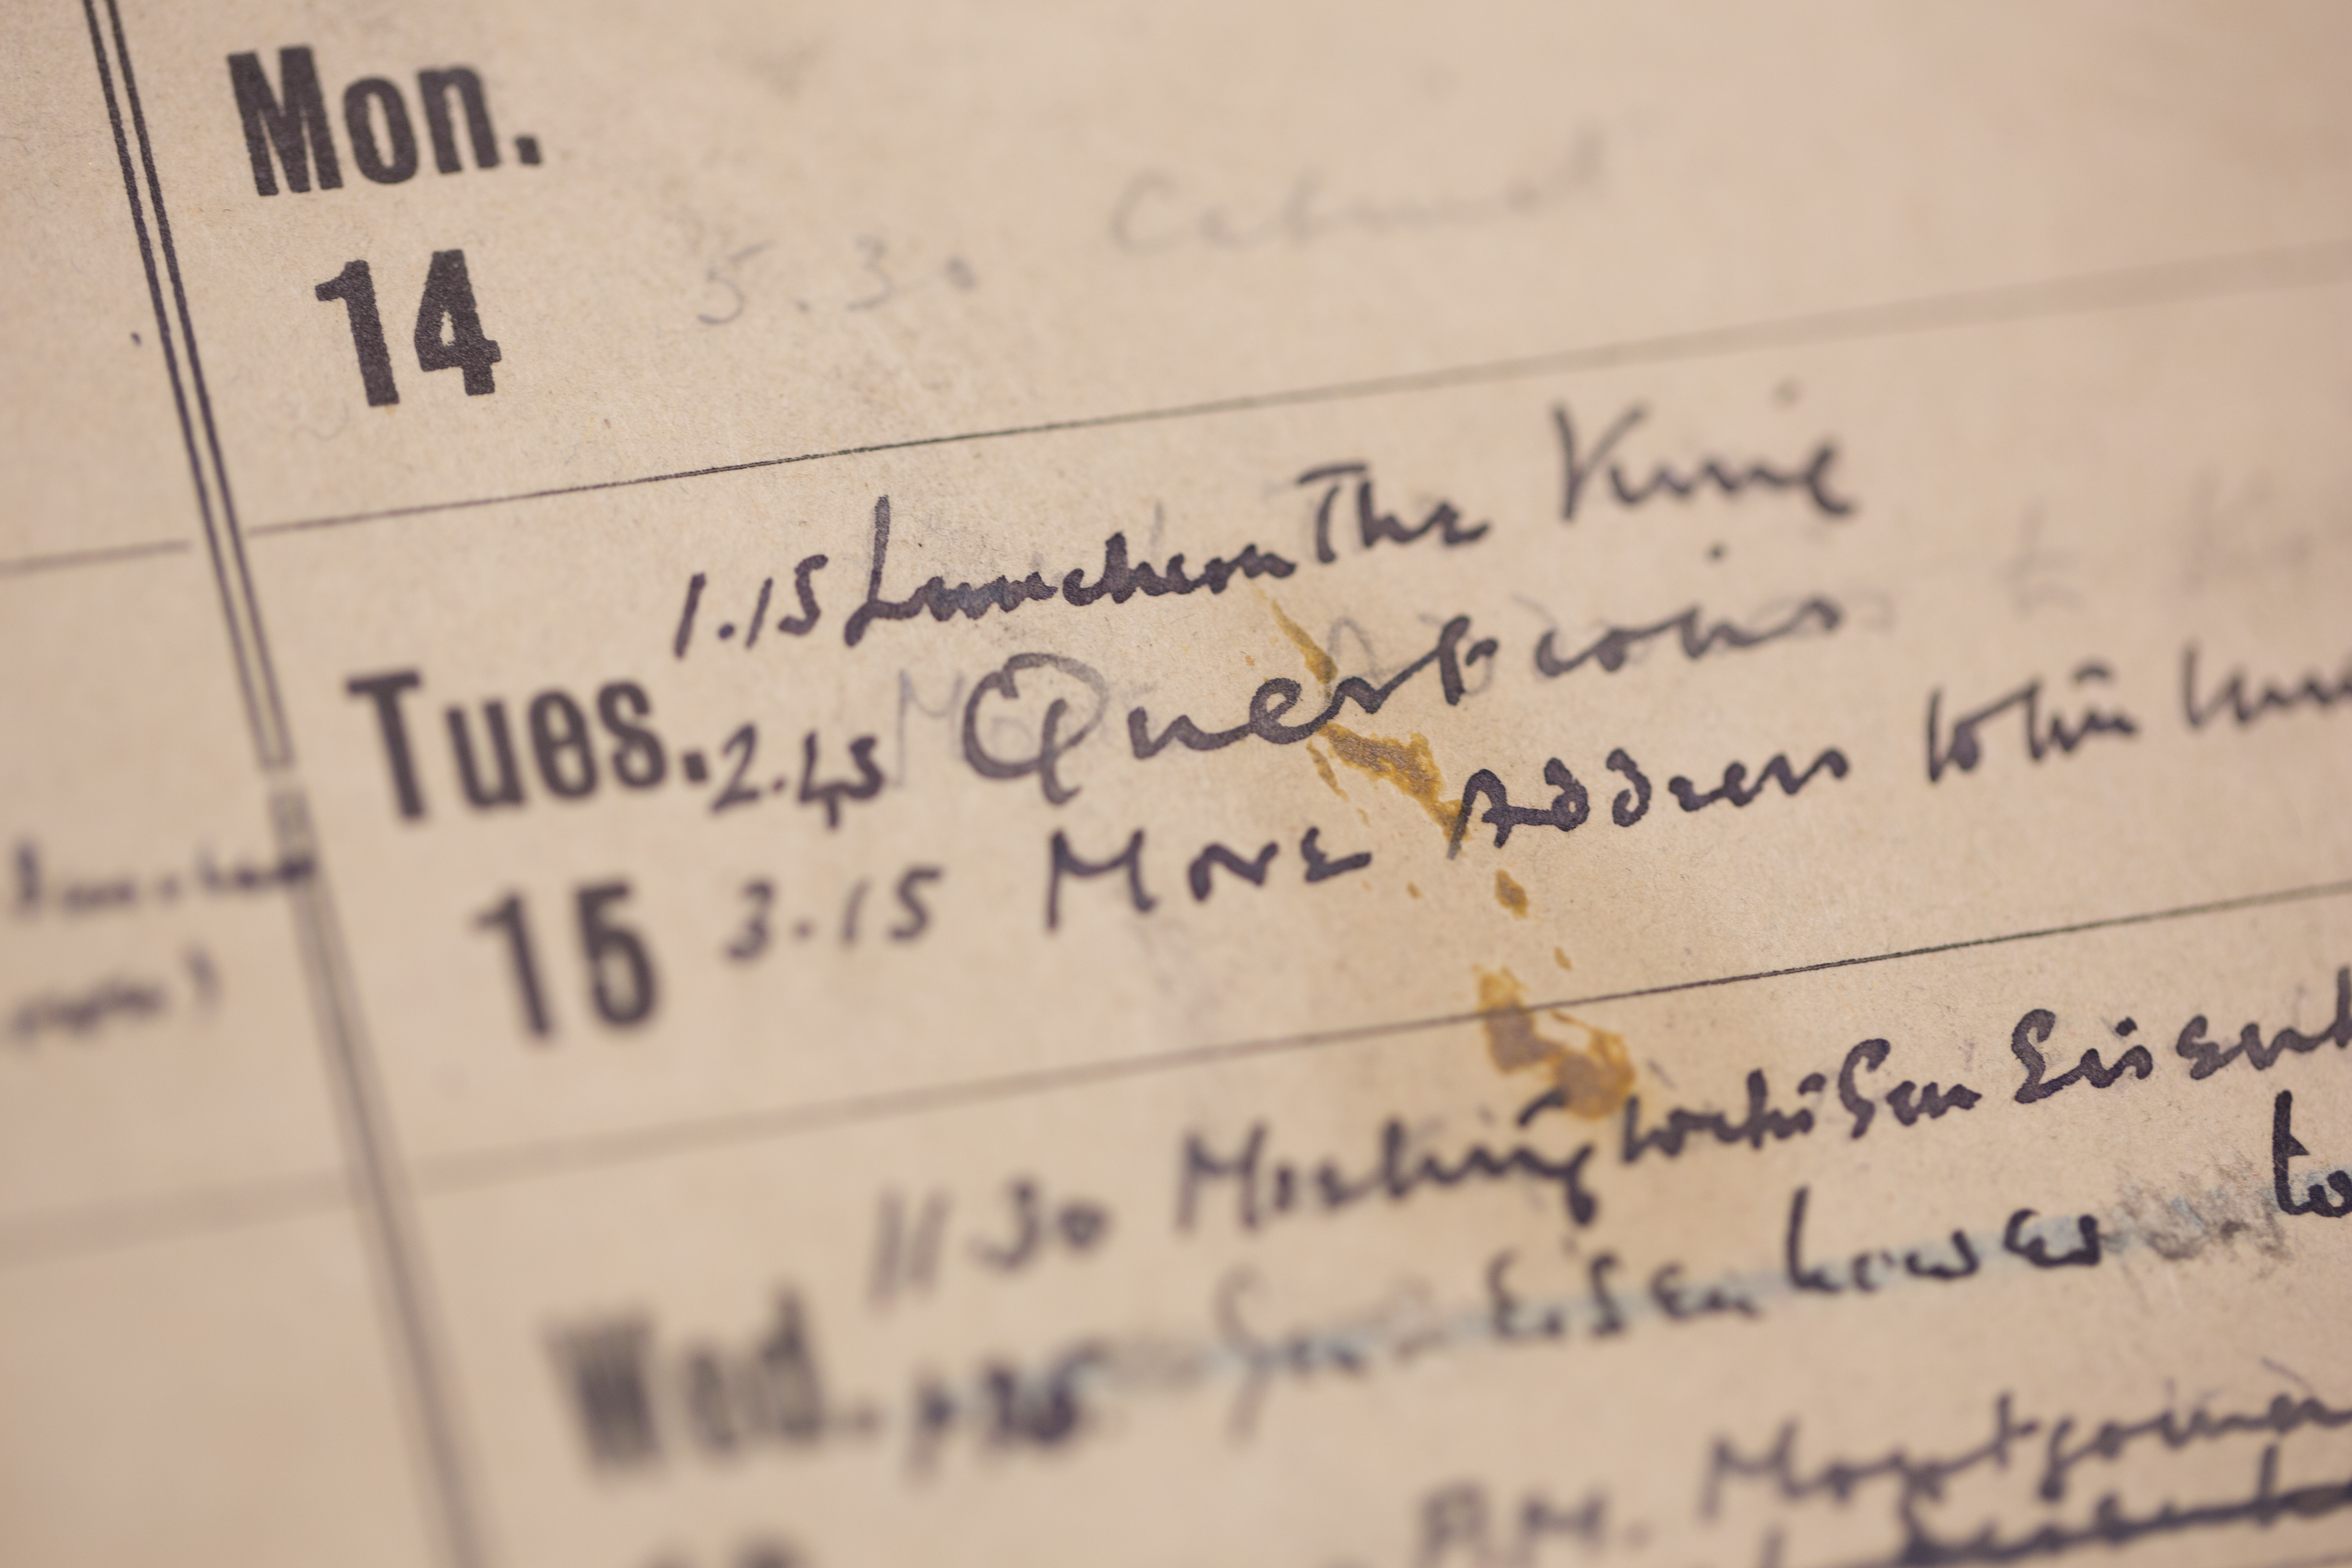 Mon.
14
5.30 Cabinet
1.15 Luncheon The King
Tues. 2.45 Questions
15 3.15 Move Address to The King
11 30 Meeting with Gen Eisenh
Wed. Gen Eisenhower to
P.M. Montgomery